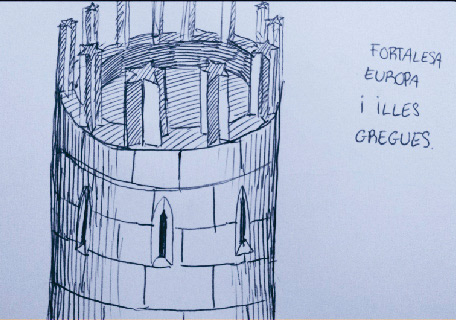 FORTALESA
EUROPA
i iLLES
GREGUES.